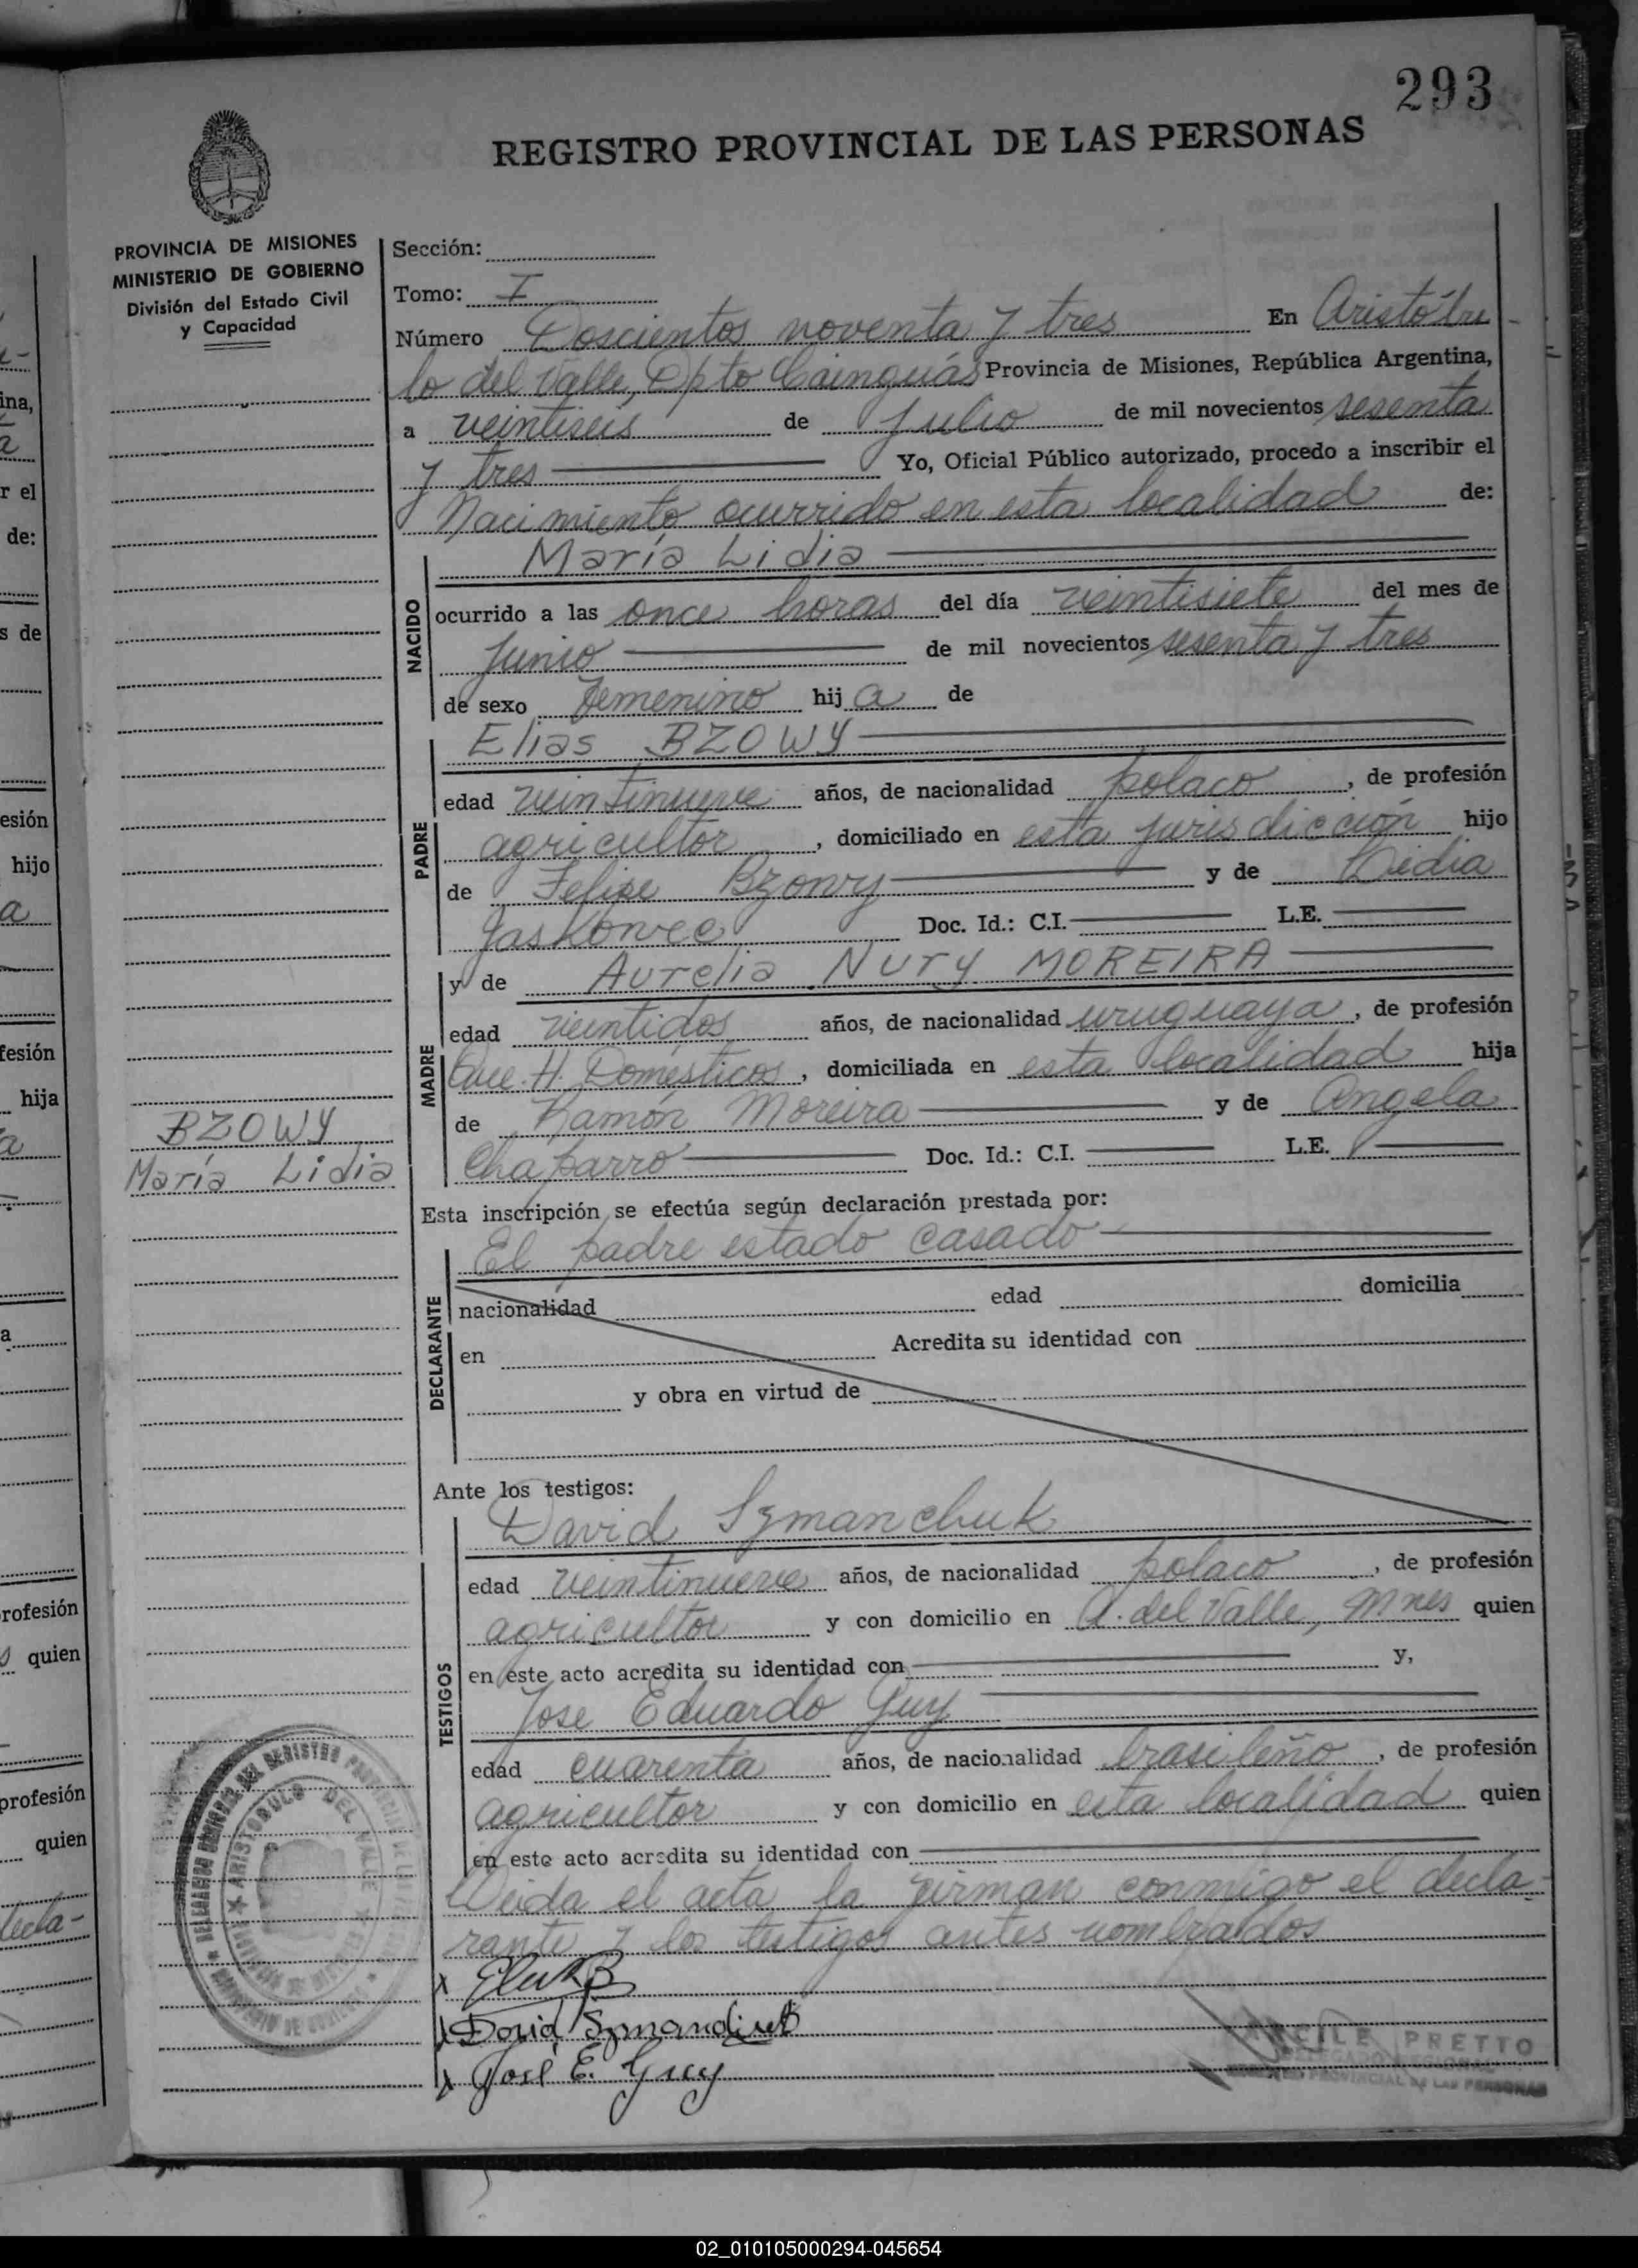 293
REGISTRO PROVINCIAL DE LAS PERSONAS
PROVINCIA DE MISIONES
MINISTERIO DE GOBIERNO
División del Estado Civil
y Capacidad
Sección:
Tomo: I
Número Doscientos noventa y tres En Aristóbu-
lo del Valle, Dpto Cainguás Provincia de Misiones, República Argentina,
a veintiseis de Julio de mil novecientos sesenta
y tres Yo, Oficial Público autorizado, procedo a inscribir el
Nacimiento ocurrido en esta localidad de:
NACIDO
María Lidia
ocurrido a las once horas del día veintisiete del mes de
Junio de mil novecientos sesenta y tres
de sexo femenino hij a de
PADRE
Elias BZOWY
edad veintinueve años, de nacionalidad polaco, de profesión
agricultor, domiciliado en esta jurisdicción hijo
de Felipe Bzowy y de Lidia
Jaskowec Doc. Id.: C.I. L.E.
MADRE
y de Aurelia Nury MOREIRA
edad veintidos años, de nacionalidad uruguaya, de profesión
Que. H. Domésticos, domiciliada en esta localidad hija
de Ramón Moreira y de Angela
Chaparro Doc. Id.: C.I. L.E.
BZOWY
María Lidia
Esta inscripción se efectúa según declaración prestada por:
DECLARANTE
El padre estado casado
nacionalidad edad domicilia
en Acredita su identidad con
y obra en virtud de
Ante los testigos:
TESTIGOS
David Szmanchuk
edad veintinueve años, de nacionalidad polaco, de profesión
agricultor y con domicilio en A. del Valle, Mnes quien
en este acto acredita su identidad con y,
Jose Eduardo Guy
edad cuarenta años, de nacionalidad brasileño, de profesión
agricultor y con domicilio en esta localidad quien
en este acto acredita su identidad con
Leida el acta, la firman conmigo el decla-
rante y los testigos antes nombrados
x
x David
x José E. Guy
ARISTOBULO DEL VALLE
PRETTO
REGISTRO PROVINCIAL DE LAS PERSONAS
02_010105000294-045654